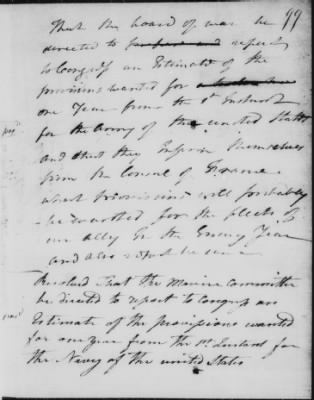 99
That the board of war be
directed to prepare and report
to Congress an Estimate of the
provisions wanted for
one Year from the 1st Instant
for the Army of the united States
and that they inform themselves
from the Consul of France
what provisions will probably
be wanted for the fleets of
our ally for the Year
and also report
Resolved that the Marine committee
be directed to report to Congress an
Estimate of the provisions wanted
for one year from the 1st Instant for
the Navy of the united States